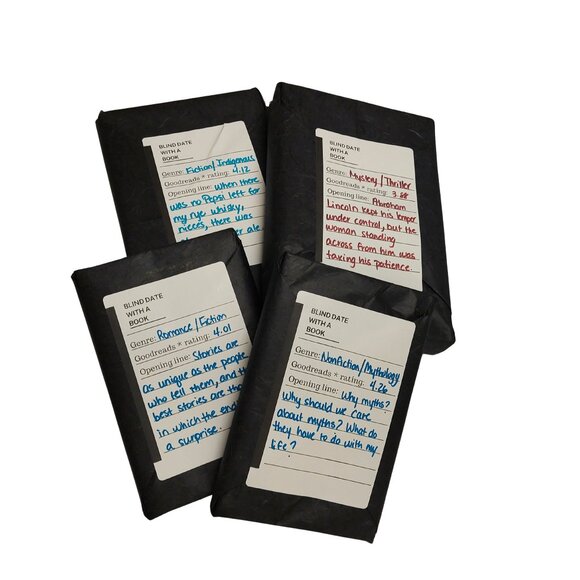 BLIND DATE
WITH A
BOOK
Genre: Fiction/Indigenous
Goodreads * rating: 4.12
Opening line: when there
was no Pepsi left for
my rye whisky,
nieces, there was
ale.
BLIND DATE
WITH A
BOOK
Genre: Mystery/Thriller
Goodreads * rating: 3.68
Opening line: Abraham
Lincoln kept his temper
under control, but the
woman standing
across from him was
taxing his patience.
BLIND DATE
WITH A
BOOK
Genre: Romance/Fiction
Goodreads * rating: 4.01
Opening line: Stories are
as unique as the people
who tell them, and the
best stories are
in which the
a surprise.
BLIND DATE
WITH A
BOOK
Genre: Nonfiction/Mythology
Goodreads * rating: 4.26
Opening line: Why myths?
Why should we care
about myths? What do
they have to do with my
life?